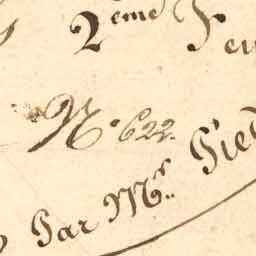 2eme Feu
No. 622.
Par Mr. Pie